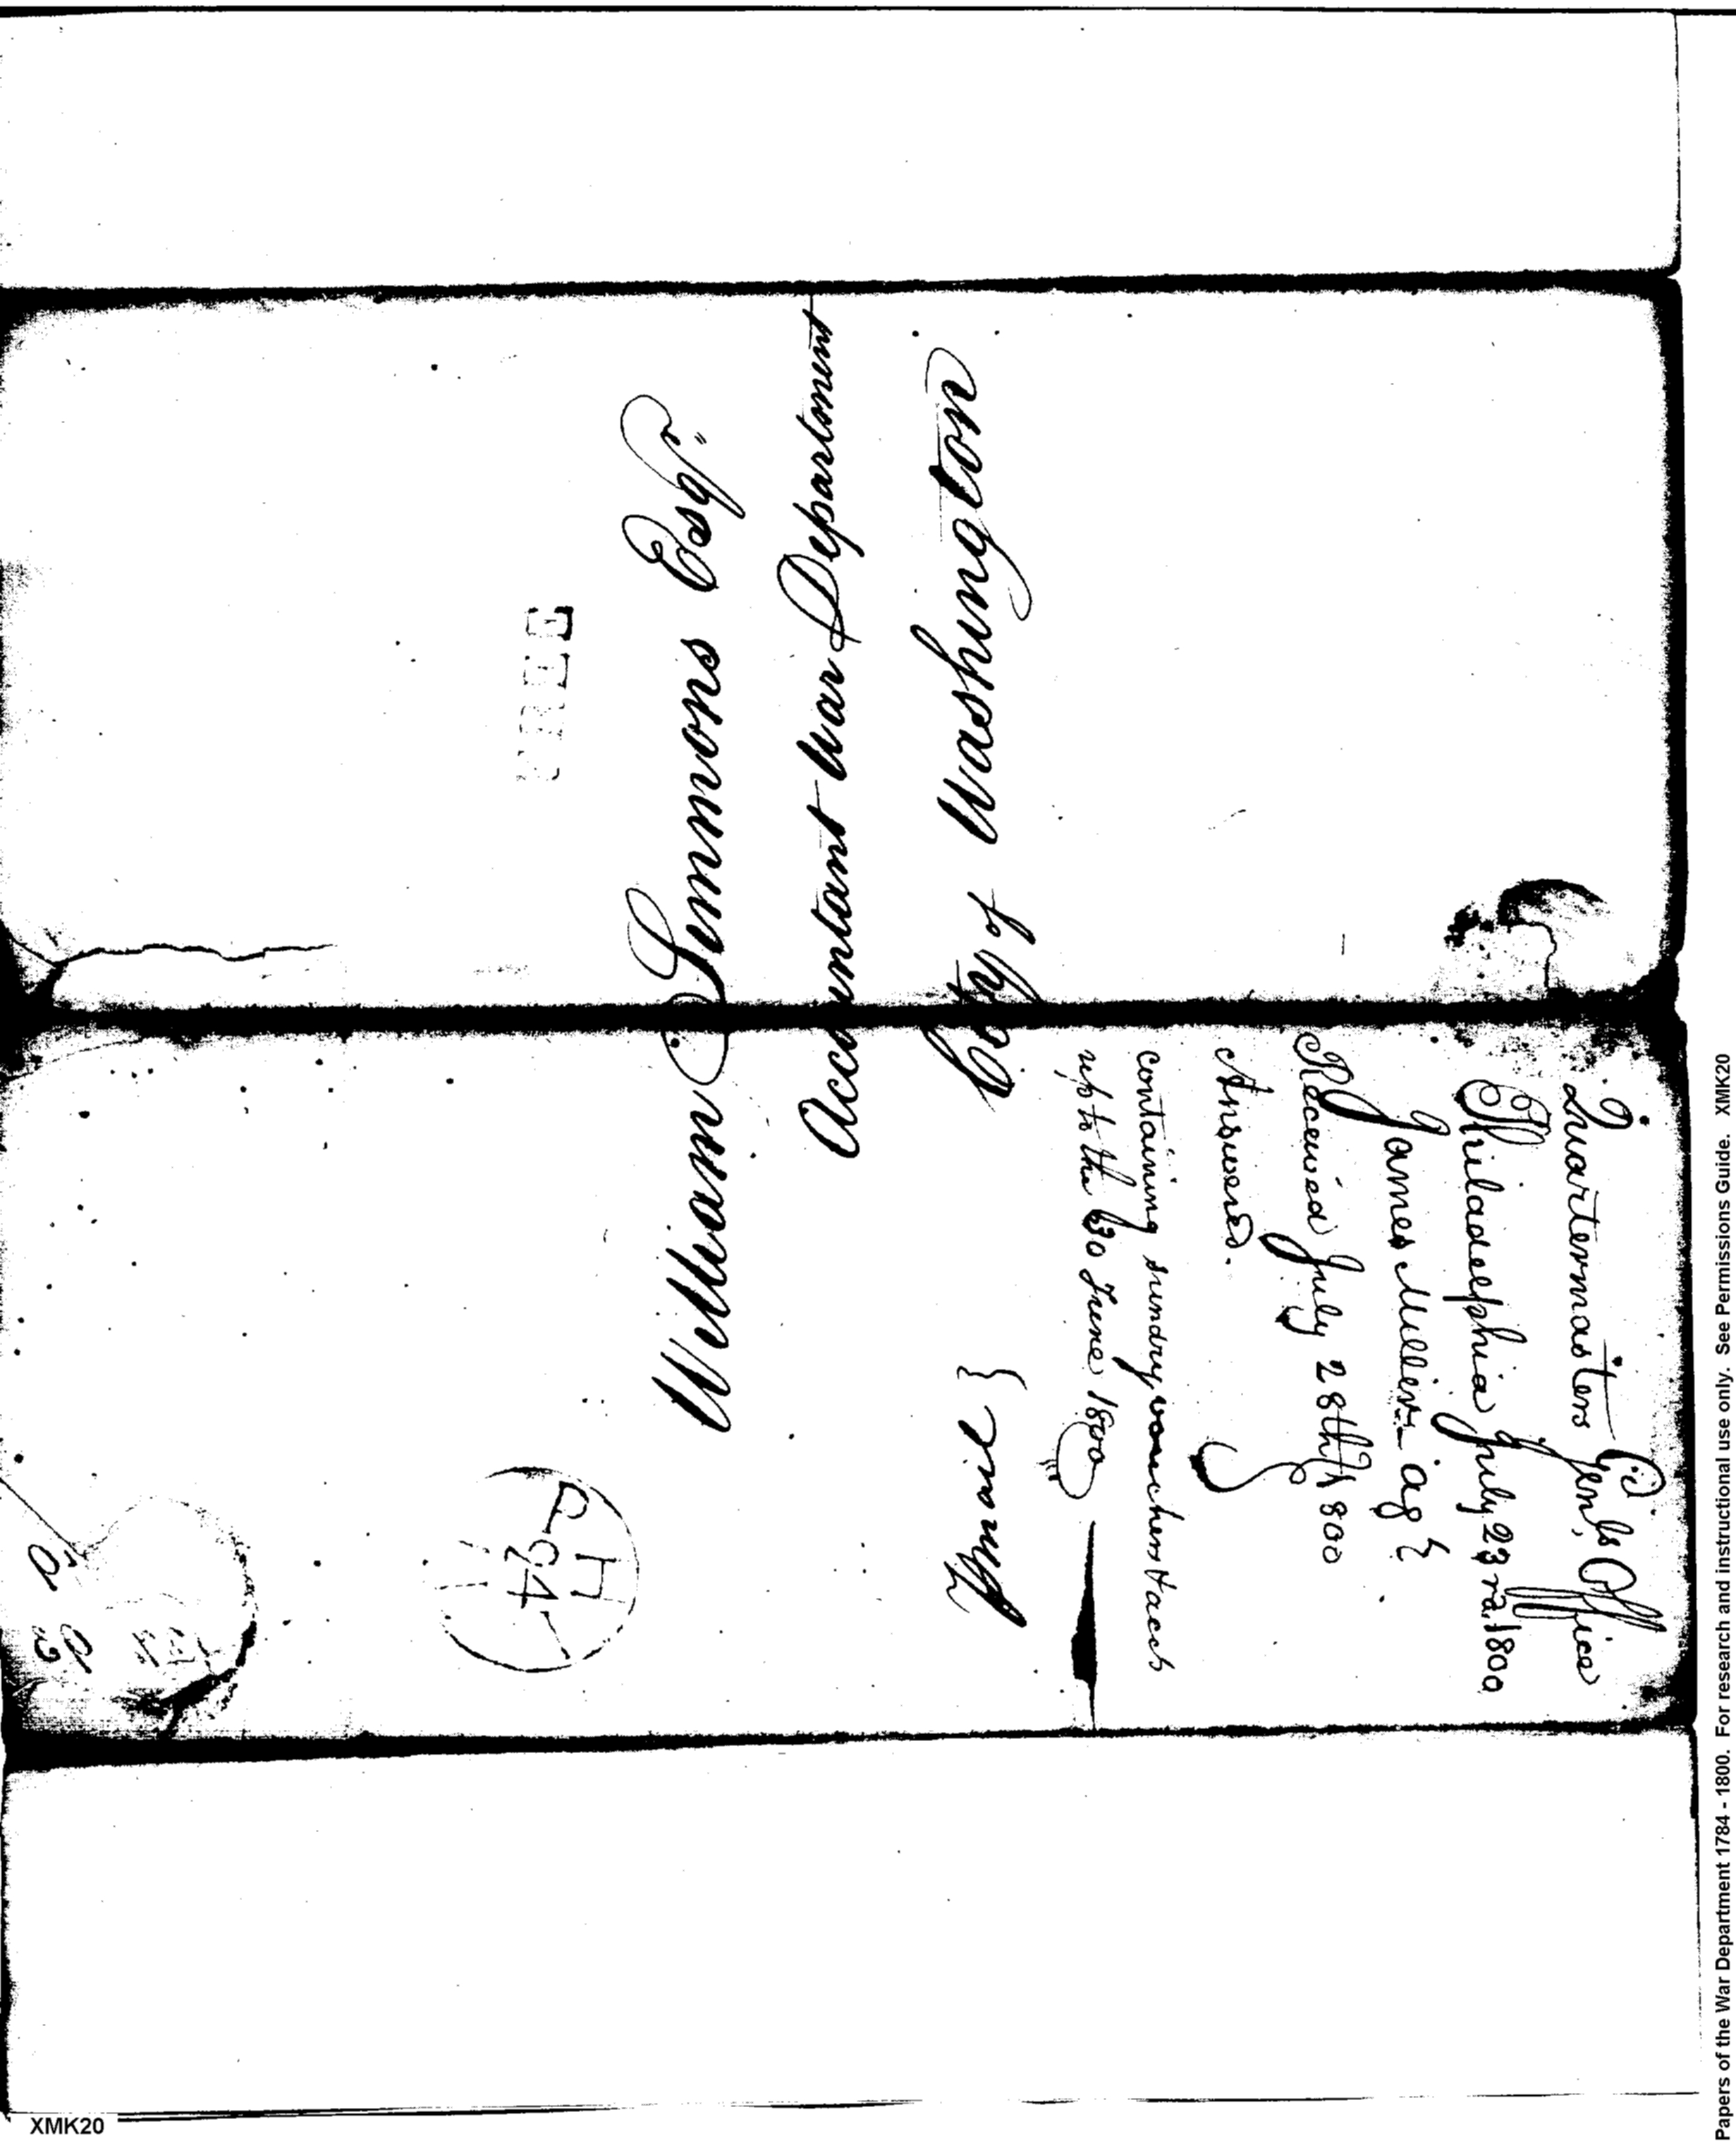 FREE
William Simmons Esqr.
Accountant War Department
City of Washington
mail }
PH
24
Quartermasters Genls. Office
Philadelphia July 23rd. 1800
James Miller ag
Received July 28th 1800
Answered.
containing sundry vouchers &
up to the 30 June 1800
XMK20
Papers of the War Department 1784 - 1800. For research and instructional use only. See Permissions Guide. XMK20